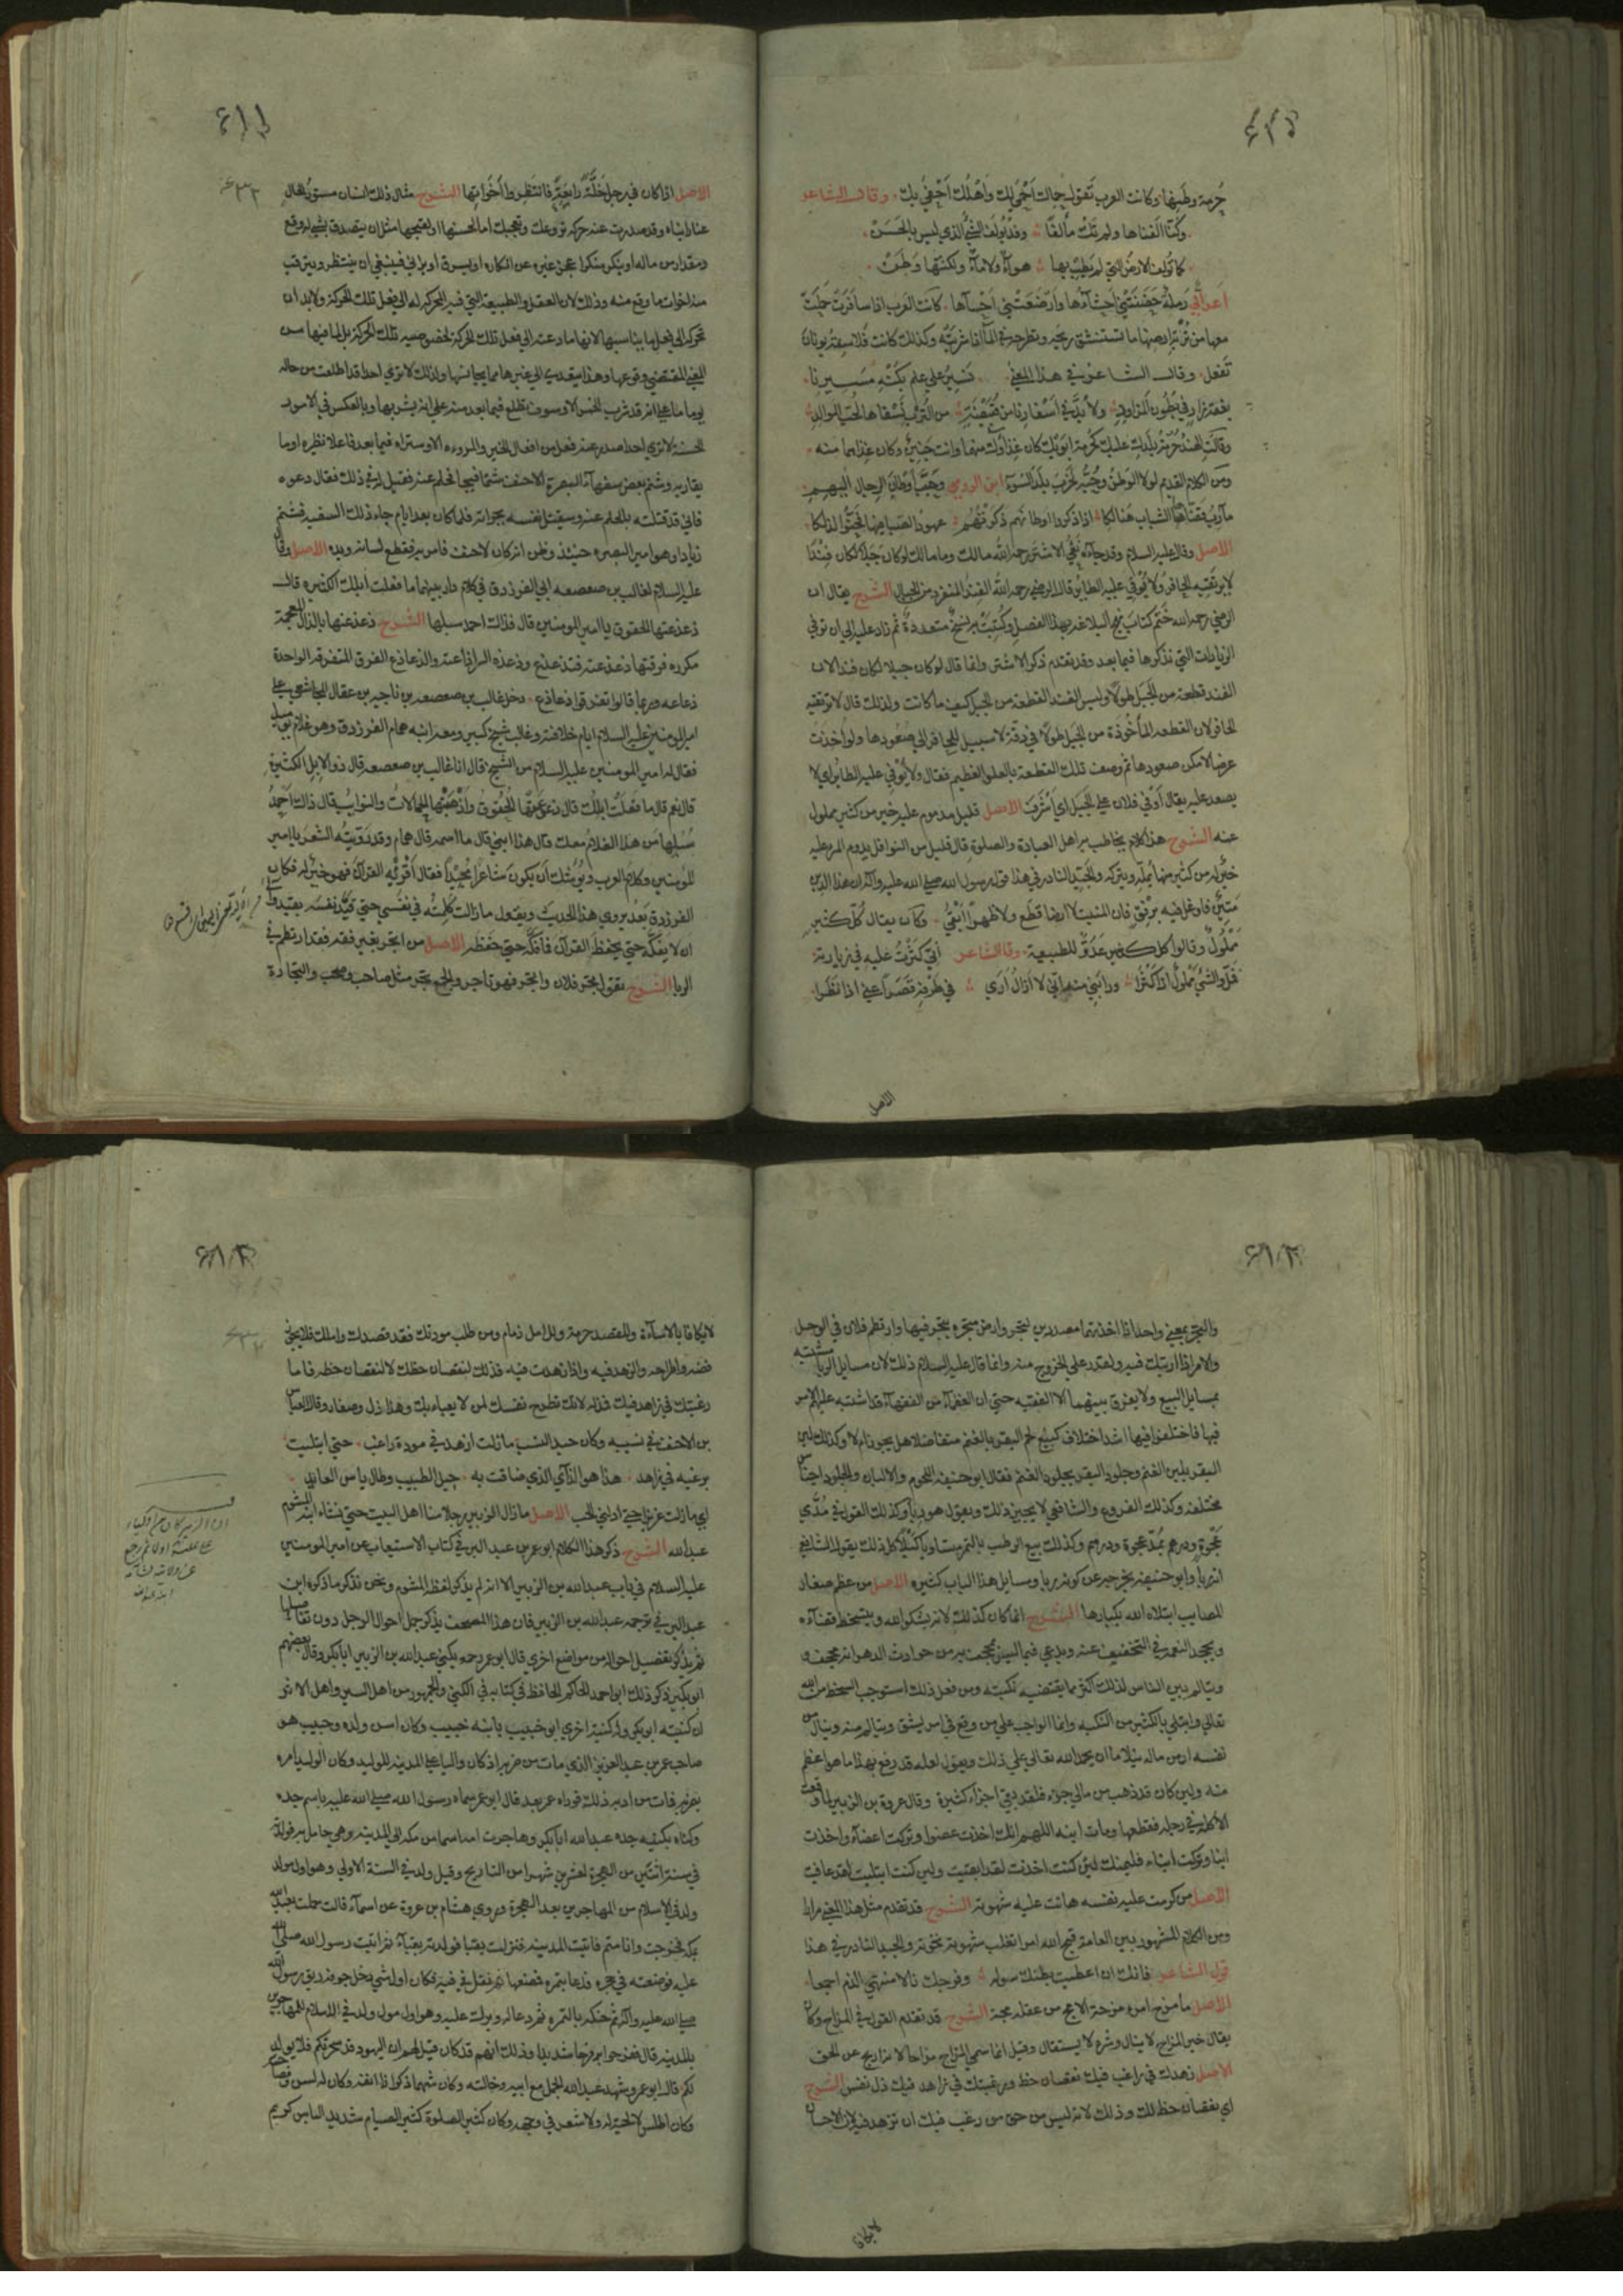 حرمة وطنها وكانت العرب تقول حماك احمى لك واهلك احفى بك وقال الشاعر
وكنا الفناها ولم تك مألفا وقد يؤلف الشئ الذي ليس بالحسن
كما تؤلف الارض التي لم يطب بها هواء ولا ماء ولكنها وطن
اعرابي رملة حضنتني احشاؤها وارضعتني احساؤها كانت العرب اذا سافرت حملت
معها من تربة ارضها ما تستنشق ريحه وتطرحه في الماء اذا شربته وكذلك كانت فلاسفة يونان
تفعل وقال الشاعر في هذا المعنى نسير على علم بكنه مسيرنا
بعفة زاد في بطون المزاود ولا بد في اسفارنا من قبيصة من الترب نسقاها لحب الموالد
وقالت الهند حرمة بلدك عليك كحرمة ابويك كان غذاؤك منهما وانت جنين وكان غذاهما منه
ومن الكلام القديم لولا الوطن وحبه لخرب بلد السوء ابن الرومي وحبب اوطان الرجال اليهم
مآرب قضاها الشباب هنالكا اذا ذكروا اوطانهم ذكرتهم عهود الصبا فيها فحنوا لذلكا
الاصل وقال عليه السلام وقد جاءه نعي الاشتر رحمه الله مالك وما مالك لو كان جبلا لكان فندا
لا يرتقيه الحافر ولا يوفي عليه الطاير قال الرضي رحمه الله الفند المنفرد من الجبال الشرح يقال ان
الرضي رحمه الله ختم كتاب نهج البلاغه بهذا الفصل وكتبت به نسخ متعددة ثم زاد عليه الى ان توفي
الزيادات التي نذكرها فيما بعد وقد تقدم ذكر الاشتر وانما قال لو كان جبلا لكان فندا لان
الفند قطعة من الجبل طولا وليس الفند القطعة من الجبل كيف ما كانت ولذلك قال لا يرتقيه
الحافر لان القطعه المأخوذة من الجبل طولا في دقة لا سبيل للحافر الى صعودها ولو اخذت
عرضا لامكن صعودها ثم وصف تلك القطعة بالعلو العظيم فقال ولا يوفي عليه الطاير اي لا
يصعد عليه يقال اوفى فلان على الجبل اي اشرف الاصل قليل مدوم عليه خير من كثير مملول
عنه الشرح هذا كلام يخاطب به اهل العبادة والصلوة قال قليل من النوافل يدوم المرء عليه
خير له من كثير منها يمله ويتركه والجيد النادر في هذا قول رسول الله صلى الله عليه وآله ان هذا الدين
متين فاوغل فيه برفق فان المنبت لا ارضا قطع ولا ظهرا ابقى وكان يقال كل كثير
مملول وقالوا كل كثير عدو للطبيعة وقال الشاعر اني كثرت عليه في زيارته
فمل والشئ مملول اذا كثرا ورابني منه اني لا ازال ارى في طرفه قصرا عني اذا نظرا
الاصل
الاصل اذا كان في رجل خلة رايعة فانتظروا اخواتها الشرح مثال ذلك انسان مستور الحال
ومقدار من ماله او ينكر منكرا عجز غيره عن انكاره او يسرق او يزني فينبغي ان ينتظر ويترقب
منه اخوات ما وقع منه وذلك لان العقل والطبيعة التي فيه المحركه له الى فعل تلك الحركة ولا بد ان
تحركه الى فعل ما يناسبها لانها ما دعته الى فعل تلك الحركة لخصوصيه تلك الحركة بل لما فيها من
المعنى المقتضي وقوعها وهذا يتعدى الى غيرها مما يجانسها ولذلك لا ترى احدا قد اطلعت من حاله
يوما ما على انه قد شرب الخمر الا وسوف تطلع فيما بعد منه على انه يشربها وبالعكس في الامور
الحسنة لا ترى احدا صدر عنه فعل من افعال الخير والمروءه الا وستراه فيما بعد فاعلا نظيره او ما
يقاربه وشتم بعض سفهاء البصرة الاحنف شتما قبيحا فحلم عنه فقيل له في ذلك فقال دعوه
فاني قد قتلته بالحلم عنه وسيقتل نفسه بجراته فلما كان بعد ايام جاء ذلك السفيه فشتم
زيادا وهو امير البصره حينئذ وظن انه كالاحنف فامر به فقطع لسانه ويده الاصل وقال
عليه السلام لغالب بن صعصعه ابي الفرزدق في كلام دار بينهما ما فعلت ابلك الكثيره قال
ذعذعتها الحقوق يا امير المومنين قال فذلك احمد سبلها الشرح ذعذعتها بالذال المعجمة
مكرره فرقتها ذعذعته فتذعذع وذعذه السر اذاعته والذعاذع الفرق المتفرقه الواحدة
ذعاعه وربما قالوا تفرقوا ذعاذع دخل غالب بن صعصعه بن ناجيه بن عقال المجاشعي على
امير المومنين عليه السلام ايام خلافته وغالب شيخ كبير ومعه ابنه همام الفرزدق وهو غلام يومئذ
فقال له امير المومنين عليه السلام من الشيخ قال انا غالب بن صعصعه قال ذو الابل الكثيرة
قال نعم قال ما فعلت ابلك قال ذعذعتها الحقوق واذهبتها الحمالات والنوايب قال ذاك احمد
سبلها من هذا الغلام معك قال هذا ابني قال ما اسمه قال همام وقد رويته الشعر يا امير
المومنين وكلام العرب ويوشك ان يكون شاعرا مجيدا فقال اقرئه القرآن فهو خير له فكان
الفرزدق بعد يروي هذا الحديث ويقول ما زالت كلمته في نفسي حتى قيد نفسه بقيد وآلى
ان لا يفكه حتى يحفظ القرآن فما فكه حتى حفظه الاصل من اتجر بغير فقه فقد ارتطم في
الربا الشرح يقول تجر فلان واتجر فهو تاجر والجمع تجر مثل صاحب وصحب والتجارة
والتجر بمعنى واحد اذا اخذتهما مصدرين لتجر وارض متجره يتجر فيها وارتطم فلان في الوحل
والامر اذا ارتبك فيه ولم يقدر على الخروج منه وانما قال عليه السلام ذلك لان مسايل الربا مشتبه
بمسايل البيع ولا يفرق بينهما الا الفقيه حتى ان العظماء من الفقهاء قد اشتبه عليهم الامر
فيها فاختلفوا فيها اشد اختلاف كبيع لحم البقر بالغنم متفاضلا هل يجوز ام لا وكذلك لبن
البقر بلبن الغنم وجلود البقر بجلود الغنم فقال ابو حنيفه اللحوم والالبان والجلود اجناس
مختلفه وكذلك الفروع والشافعي لا يجيز ذلك ويقول هو ربا وكذلك القول في مدي
عجوة ودرهم بمد عجوة ودرهم وكذلك بيع الرطب بالتمر متساويا كيلا كل ذلك يقول الشافعي
انه ربا وابو حنيفه يخرجه عن كونه ربا ومسايل هذا الباب كثيره الاصل من عظم صغار
المصايب ابتلاه الله بكبارها الشرح انما كان كذلك لانه يشكو الله ويتسخط قضاءه
ويجحد النعمة في التخفيف عنه ويدعي فيما ليس بمجحف به من حوادث الدهر انه مجحف
ويتالم بين الناس لذلك اكثر مما يقتضيه نكبته ومن فعل ذلك استوجب السخط من الله
تعالى وابتلي بالكثير من النكبه وانما الواجب على من وقع في امر يشق ويتالم منه وينال من
نفسه او من ماله نيلا ما ان يحمد الله تعالى على ذلك ويقول لعله قد دفع بهذا ما هو اعظم
منه ولين كان قد ذهب من مالي جزء فلقد بقي اجزاء كثيرة وقال عروة بن الزبير لما وقعت
الاكلة في رجله فقطعها ومات ابنه اللهم انك اخذت عضوا وتركت اعضاء واخذت
ابنا وتركت ابناء فليهنك لئن كنت اخذت لقد ابقيت ولين كنت ابتليت لقد عافيت
الاصل من كرمت عليه نفسه هانت عليه شهوته الشرح قد تقدم مثل هذا المعنى مرارا
ومن الكلام المشهور بين العامة قبح الله امرا تغلب شهوته نخوته والجيد النادر في هذا
قول الشاعر فانك ان اعطيت بطنك سوله وفرجك نالا منتهى الذم اجمعا
الاصل ما مزح امرء مزحة الا مج من عقله مجة الشرح قد تقدم القول في المزاح وكان
يقال خير المزاح لا ينال وشره لا يستقال وقيل انما سمي المزاح مزاحا لانه ازيح عن الحق
الاصل زهدك في راغب فيك نقصان حظ ورغبتك في زاهد فيك ذل نفس الشرح
اي نقصان حظ لك وذلك لانه ليس من حق من رغب فيك ان تزهد فيه لان الاحسان
لا يكافا
لا يكافا بالاساءة وللقصد حرمة وللآمل ذمام ومن طلب مودتك فقد قصدك واملك فلا يجوز
رفضه واطراحه والزهد فيه واذا زهدت فيه فذلك لنقصان حظك لا لنقصان حظه فاما
رغبتك في زاهد فيك فذل لانك تطرح نفسك لمن لا يعباء بك وهذا ذل وصغار وقال العباس
بن الاحنف في نسيبه وكان جيد النسيب ما زلت ازهد في مودة راغب حتى ابتليت
برغبه في زاهد هذا هو الداء الذي ضاقت به حيل الطبيب وطال ياس العايد
اي ما زلت عزيزا حتى اذلني الحب الاصل ما زال الزبير رجلا منا اهل البيت حتى نشاء ابنه المشوم
عبد الله الشرح ذكر هذا الكلام ابو عمر بن عبد البر في كتاب الاستيعاب عن امير المومنين
عليه السلام في باب عبد الله بن الزبير الا انه لم يذكر لفظ المشوم ونحن نذكر ما ذكره ابن
عبد البر في ترجمه عبد الله بن الزبير فان هذا المصنف يذكر جمل احوال الرجل دون تفاصيلها
ثم يذكر تفصيل احواله من مواضع اخرى قال ابو عمر رحمه يكنى عبد الله بن الزبير ابا بكر وقال بعضهم
ابو بكير ذكر ذلك ابو احمد الحاكم الحافظ في كتابه في الكنى والجمهور من اهل السير واهل الاثر
ان كنيته ابو بكر وله كنية اخرى ابو خبيب بابنه خبيب وكان اسن ولده وخبيب هو
صاحب عمر بن عبد العزيز الذي مات من ضربه اذ كان واليا على المدينه للوليد وكان الوليد امره
بضربه فمات من ادبه ذلك فوداه عمر بعد قال ابو عمر سماه رسول الله صلى الله عليه باسم جده
وكناه بكنيه جده عبد الله ابا بكر وهاجرت امه اسما من مكه الى المدينه وهي حامل به فولدته
في سنة اثنتين من الهجرة لعشرين شهرا من التاريخ وقيل ولد في السنة الاولى وهو اول مولود
ولد في الاسلام من المهاجرين بعد الهجرة وروى هشام بن عروة عن اسماء قالت حملت بعبد الله
بمكه فخرجت وانا متم فاتيت المدينه فنزلت بقبا فولدته بقباء ثم اتيت رسول الله صلى الله
عليه فوضعته في حجره فدعا بتمره فمضغها ثم تفل في فيه فكان اول شي دخل جوفه ريق رسول الله
صلى الله عليه وآله ثم حنكه بالتمره ثم دعا له وبرك عليه وهو اول مولود ولد في الاسلام للمهاجرين
بالمدينه قال ففرحوا به فرحا شديدا وذلك انهم قد كان قيل لهم ان اليهود قد سحرتكم فلا يولد
لكم قال ابو عمرو شهد عبد الله الجمل مع ابيه وخالته وكان شهما ذكرا ذا انفه وكان له لسن وفصاحه
وكان اطلس لا لحية له ولا شعر في وجهه وكان كثير الصلوة كثير الصيام شديد الباس كريم